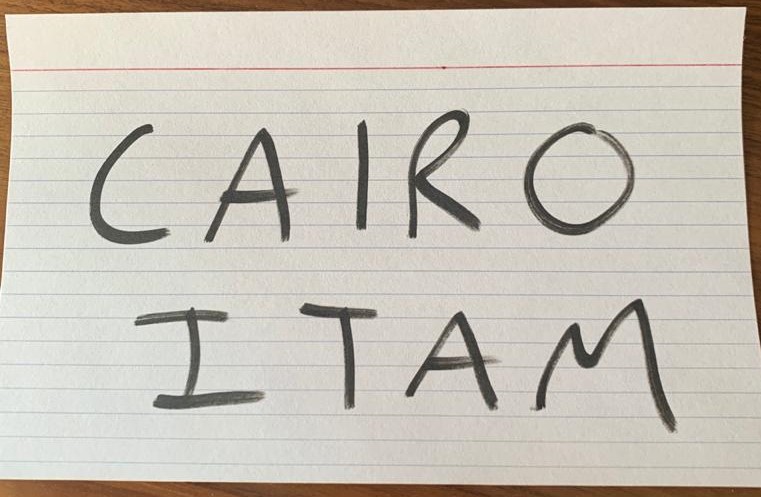 CAIRO
ITAM